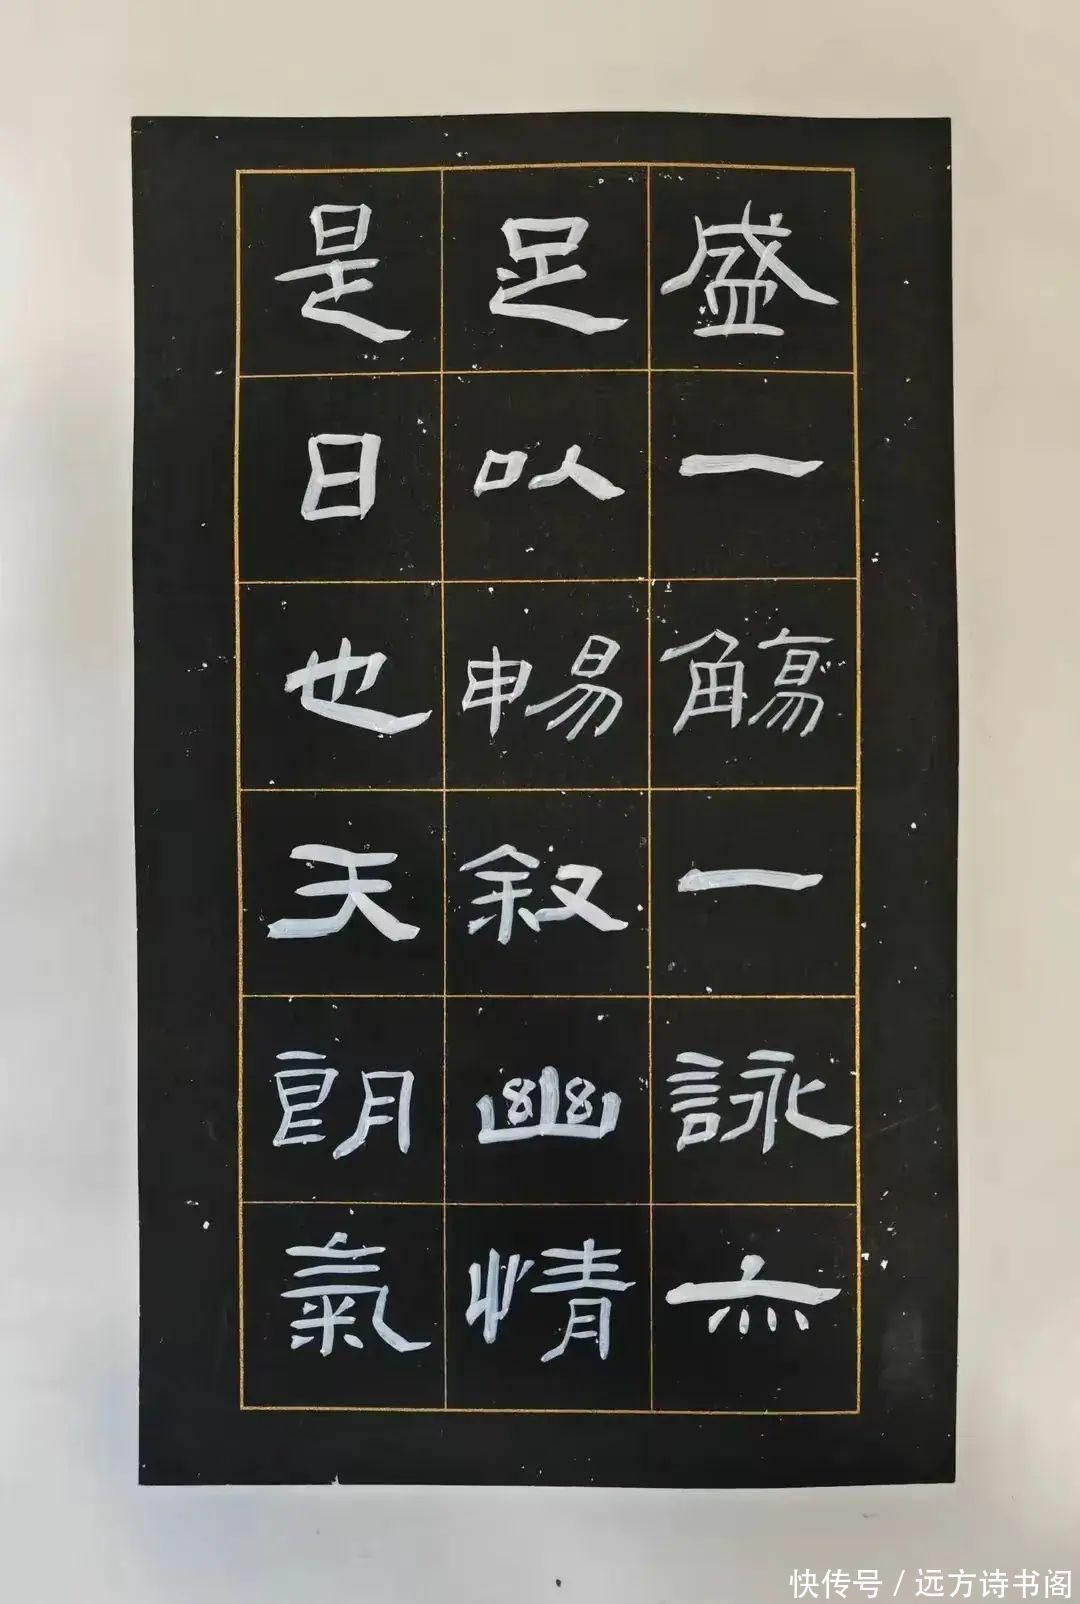 盛一觴一詠亦
足以暢叙幽情
是日也天朗氣
快传号/远方诗书阁